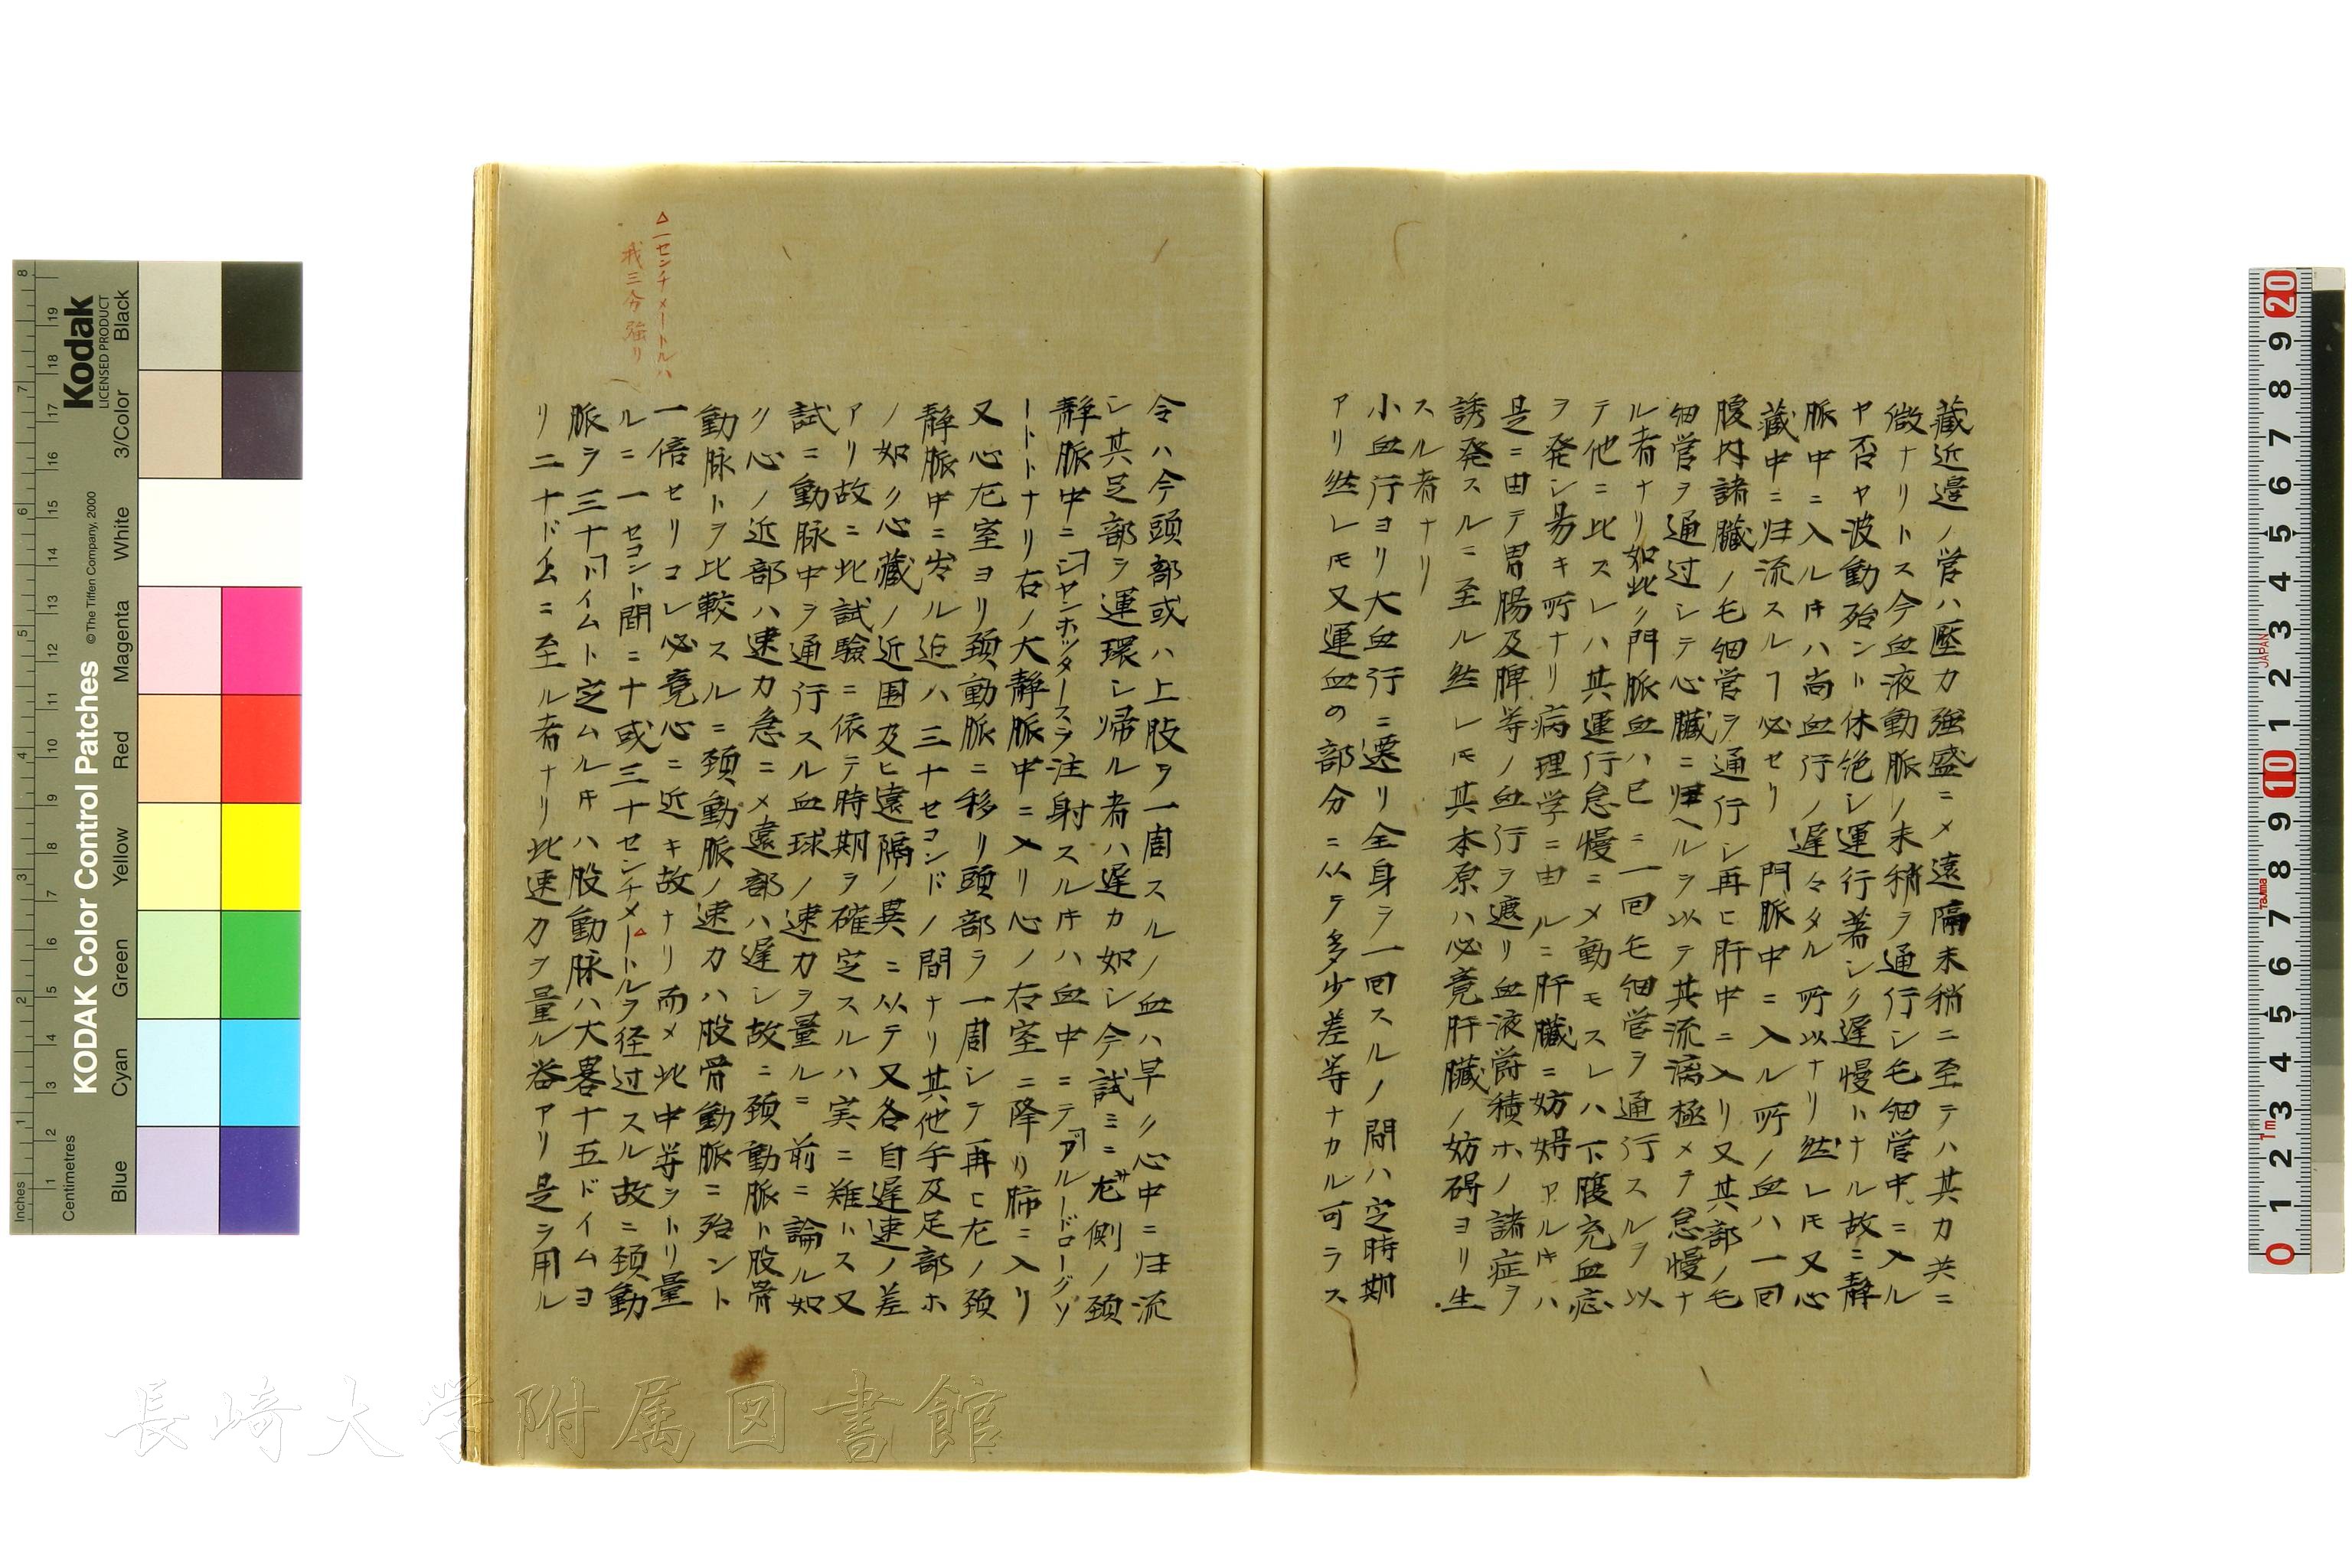 藏近邉ノ管ハ壓力強盛ニメ遠隔末稍ニ至テハ其力共ニ
微ナリトス今血液動脈ノ末稍ヲ通行シ毛細管中ニ入ル
ヤ否ヤ波動殆ント休絶シ運行著シク遅慢トナル故ニ静
脈中ニ入ル𪜈ハ尚血行ノ遅々タル所以ナリ然レ𪜈又心
藏中ニ归流スルヿ必セリ 門脈中ニ入ル所ノ血ハ一回
腹内諸臓ノ毛細管ヲ通行シ再ヒ肝中ニ入リ又其部ノ毛
細管ヲ通过シテ心臓ニ归ヘルヲ以テ其流漓極メテ怠慢ナ
ル者ナリ如此ク門脈血ハ已ニ一回毛細管ヲ通行スルヲ以
テ他ニ比スレハ其運行怠慢ニメ動モスレハ下腹充血症
ヲ発シ易キ所ナリ病理学ニ由ルニ肝臓ニ妨㝵アルキハ
是ニ由テ胃腸及脾等ノ血行ヲ遮リ血液欝積ホノ諸症ヲ
誘発スルニ至ル然レ𪜈其本原ハ必竟肝臓ノ妨碍ヨリ生
スル者ナリ
小血行ヨリ大血行ニ遷リ全身ヲ一回スルノ間ハ定時期
アリ然レ𪜈又運血の部分ニ从テ多少差等ナカル可ラス
令ハ今頭部或ハ上肢ヲ一周スルノ血ハ早ク心中ニ归流
シ其足部ヲ運環シ帰ル者ハ遅カ如シ今試ミニ左側ノ頚
静脈中ニ「シヤンホツタースヲ注射スルキハ血中ニテ「ブルードローグソ
ートトナリ右ノ大静脈中ニ入リ心ノ右室ニ降リ肺ニ入リ
又心左室ヨリ頚動脈ニ移リ頭部ヲ一周シテ再ヒ左ノ頚
静脈中ニ出ル迠ハ三十セコンドノ間ナリ其他手及足部ホ
ノ如ク心藏ノ近囲及ヒ遠隔ノ異ニ从テ又各自遅速ノ差
アリ故ニ此試驗ニ依テ時期ヲ確定スルハ実ニ難トス又
試ニ動脈中ヲ通行スル血球ノ速力ヲ量ルニ前ニ論ル如
ク心ノ近部ハ速力急ニメ遠部ハ遅シ故ニ頚動脈ト股骨
動脉トヲ比較スルニ頚動脈ノ速力ハ股骨動脈ニ殆ント
一倍セリコレ必竟心ニ近キ故ナリ而メ此中等ヲトリ量
ルニ一セコント間ニ十或三十センチメートルヲ径过スル故ニ頚動
脈ヲ三十「ドイムト定ムルキハ股動脉ハ大畧十五ドイムヨ
リ二十ドイムニ至ル者ナリ此速力ヲ量ル器アリ是ヲ用ル
△一センチメートルハ
我三分強リ